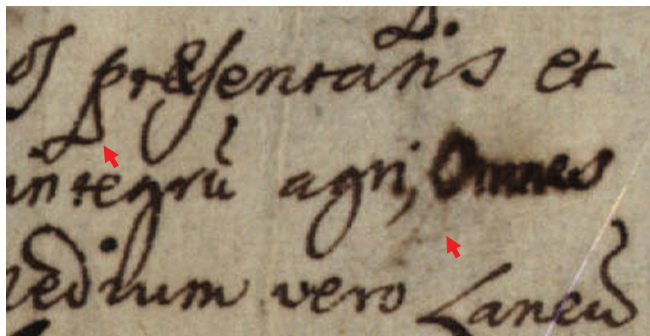 præsentatis et
integrū agri, Omnes
medium vero Laneū